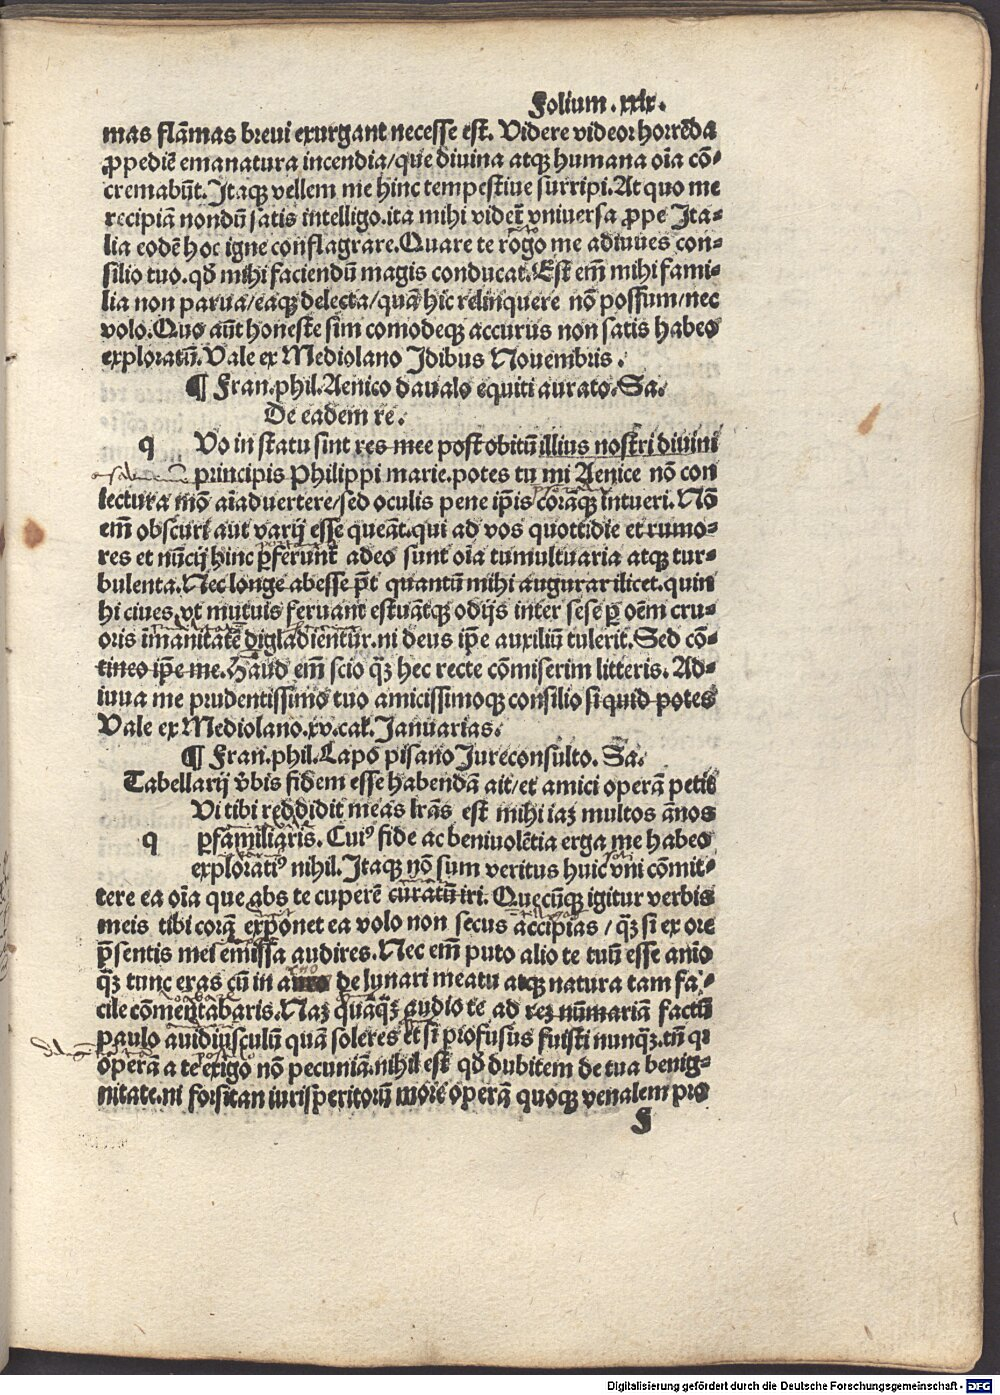 Folium. xxix.
mas flāmas breui exurgant necesse est. Videre videor horrēda
ꝓpediē emanatura incendia/que diuina atqꝫ humana oīa cō-
cremabūt. Itaqꝫ vellem me hinc tempestiue surripi. At quo me
recipiā nondū satis intelligo. ita mihi videt̄ vniuersa ꝓpe Ita-
lia eodē hoc igne conflagrare. Quare te rogo me adiuues con-
silio tuo. qd̄ mihi faciendū magis conducat. Est em̄ mihi fami-
lia non parua/eaqꝫ delecta/quā hic relinquere nō possum/nec
volo. Quo aūt honeste sim comodeqꝫ accurus non satis habeo
exploratū. Vale ex Mediolano Idibus Nouembris.
¶ Fran. phil. Aenico daualo equiti aurato. Sa.
De eadem re.
q Vo in statu sint res mee post obitū illius nostri diuini
principis Philippi marie. potes tu mi Aenice nō con
lectura mō aīaduertere/sed oculis pene ip̄is corāqꝫ intueri. Nō
em̄ obscuri aut varij esse queāt. qui ad vos quottidie et rumo-
res et nūcij hinc p̄ferunt̄ adeo sunt oīa tumultuaria atqꝫ tur-
bulenta. Nec longe abesse pōt quantū mihi augurari licet. quin
hi ciues vt mutuis feruant estuātqꝫ odijs inter sese ꝑ oēm cru-
oris īmanitatē digladientur. ni deus ip̄e auxiliū tulerit. Sed cō-
tineo ip̄e me. Haud em̄ scio qꝫ̄ hec recte cōmiserim litteris. Ad-
iuua me prudentissimo tuo amicissimoqꝫ consilio si quid potes
Vale ex Mediolano. xv. cal. Ianuarias.
¶ Fran. phil. Lapo pisano Iureconsulto. Sa.
Tabellarij v̄bis fidem esse habendā ait/et amici operā petit
Vi tibi reddidit meas lr̄as est mihi iaꝫ multos ānos
q ꝑfamiliaris. Cuiꝰ fide ac beniuolētia erga me habeo
exploratiꝰ nihil. Itaqꝫ nō sum veritus huic vni cōmit-
tere ea oīa que abs te cuperē curatū iri. Quecūqꝫ igitur verbis
meis tibi corā exponet ea volo non secus accipias / qꝫ̄ si ex ore
p̄sentis mei emissa audires. Nec em̄ puto alio te tuū esse anīo
qꝫ̄ tunc eras cū in de lunari meatu atqꝫ natura tam fa-
cile cōmentabaris. Naꝫ quāqꝫ̄ audio te ad reꝫ nūmariā factū
paulo auidiusculū quā soleres et si profusus fuisti nunqꝫ̄. tn̄ qꝛ
operā a te exigo nō pecuniā. nihil est qd̄ dubitem de tua benig-
nitate. ni forsitan iurisperitorū more operā quoqꝫ venalem pro
F
Digitalisierung gefördert durch die Deutsche Forschungsgemeinschaft - DFG